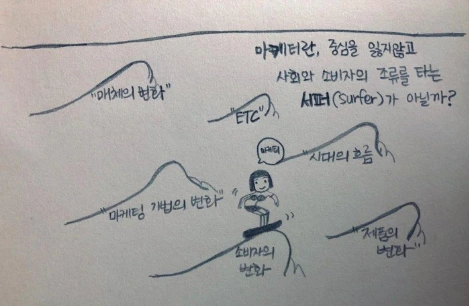 마케터란, 중심을 잃지않고
사회와 소비자의 조류를 타는
서퍼(surfer)가 아닐까?
"매체의 변화"
"ETC"
마케터
"시대의 흐름"
"마케팅 기법의 변화"
"소비자의
변화"
"제품의
변화"